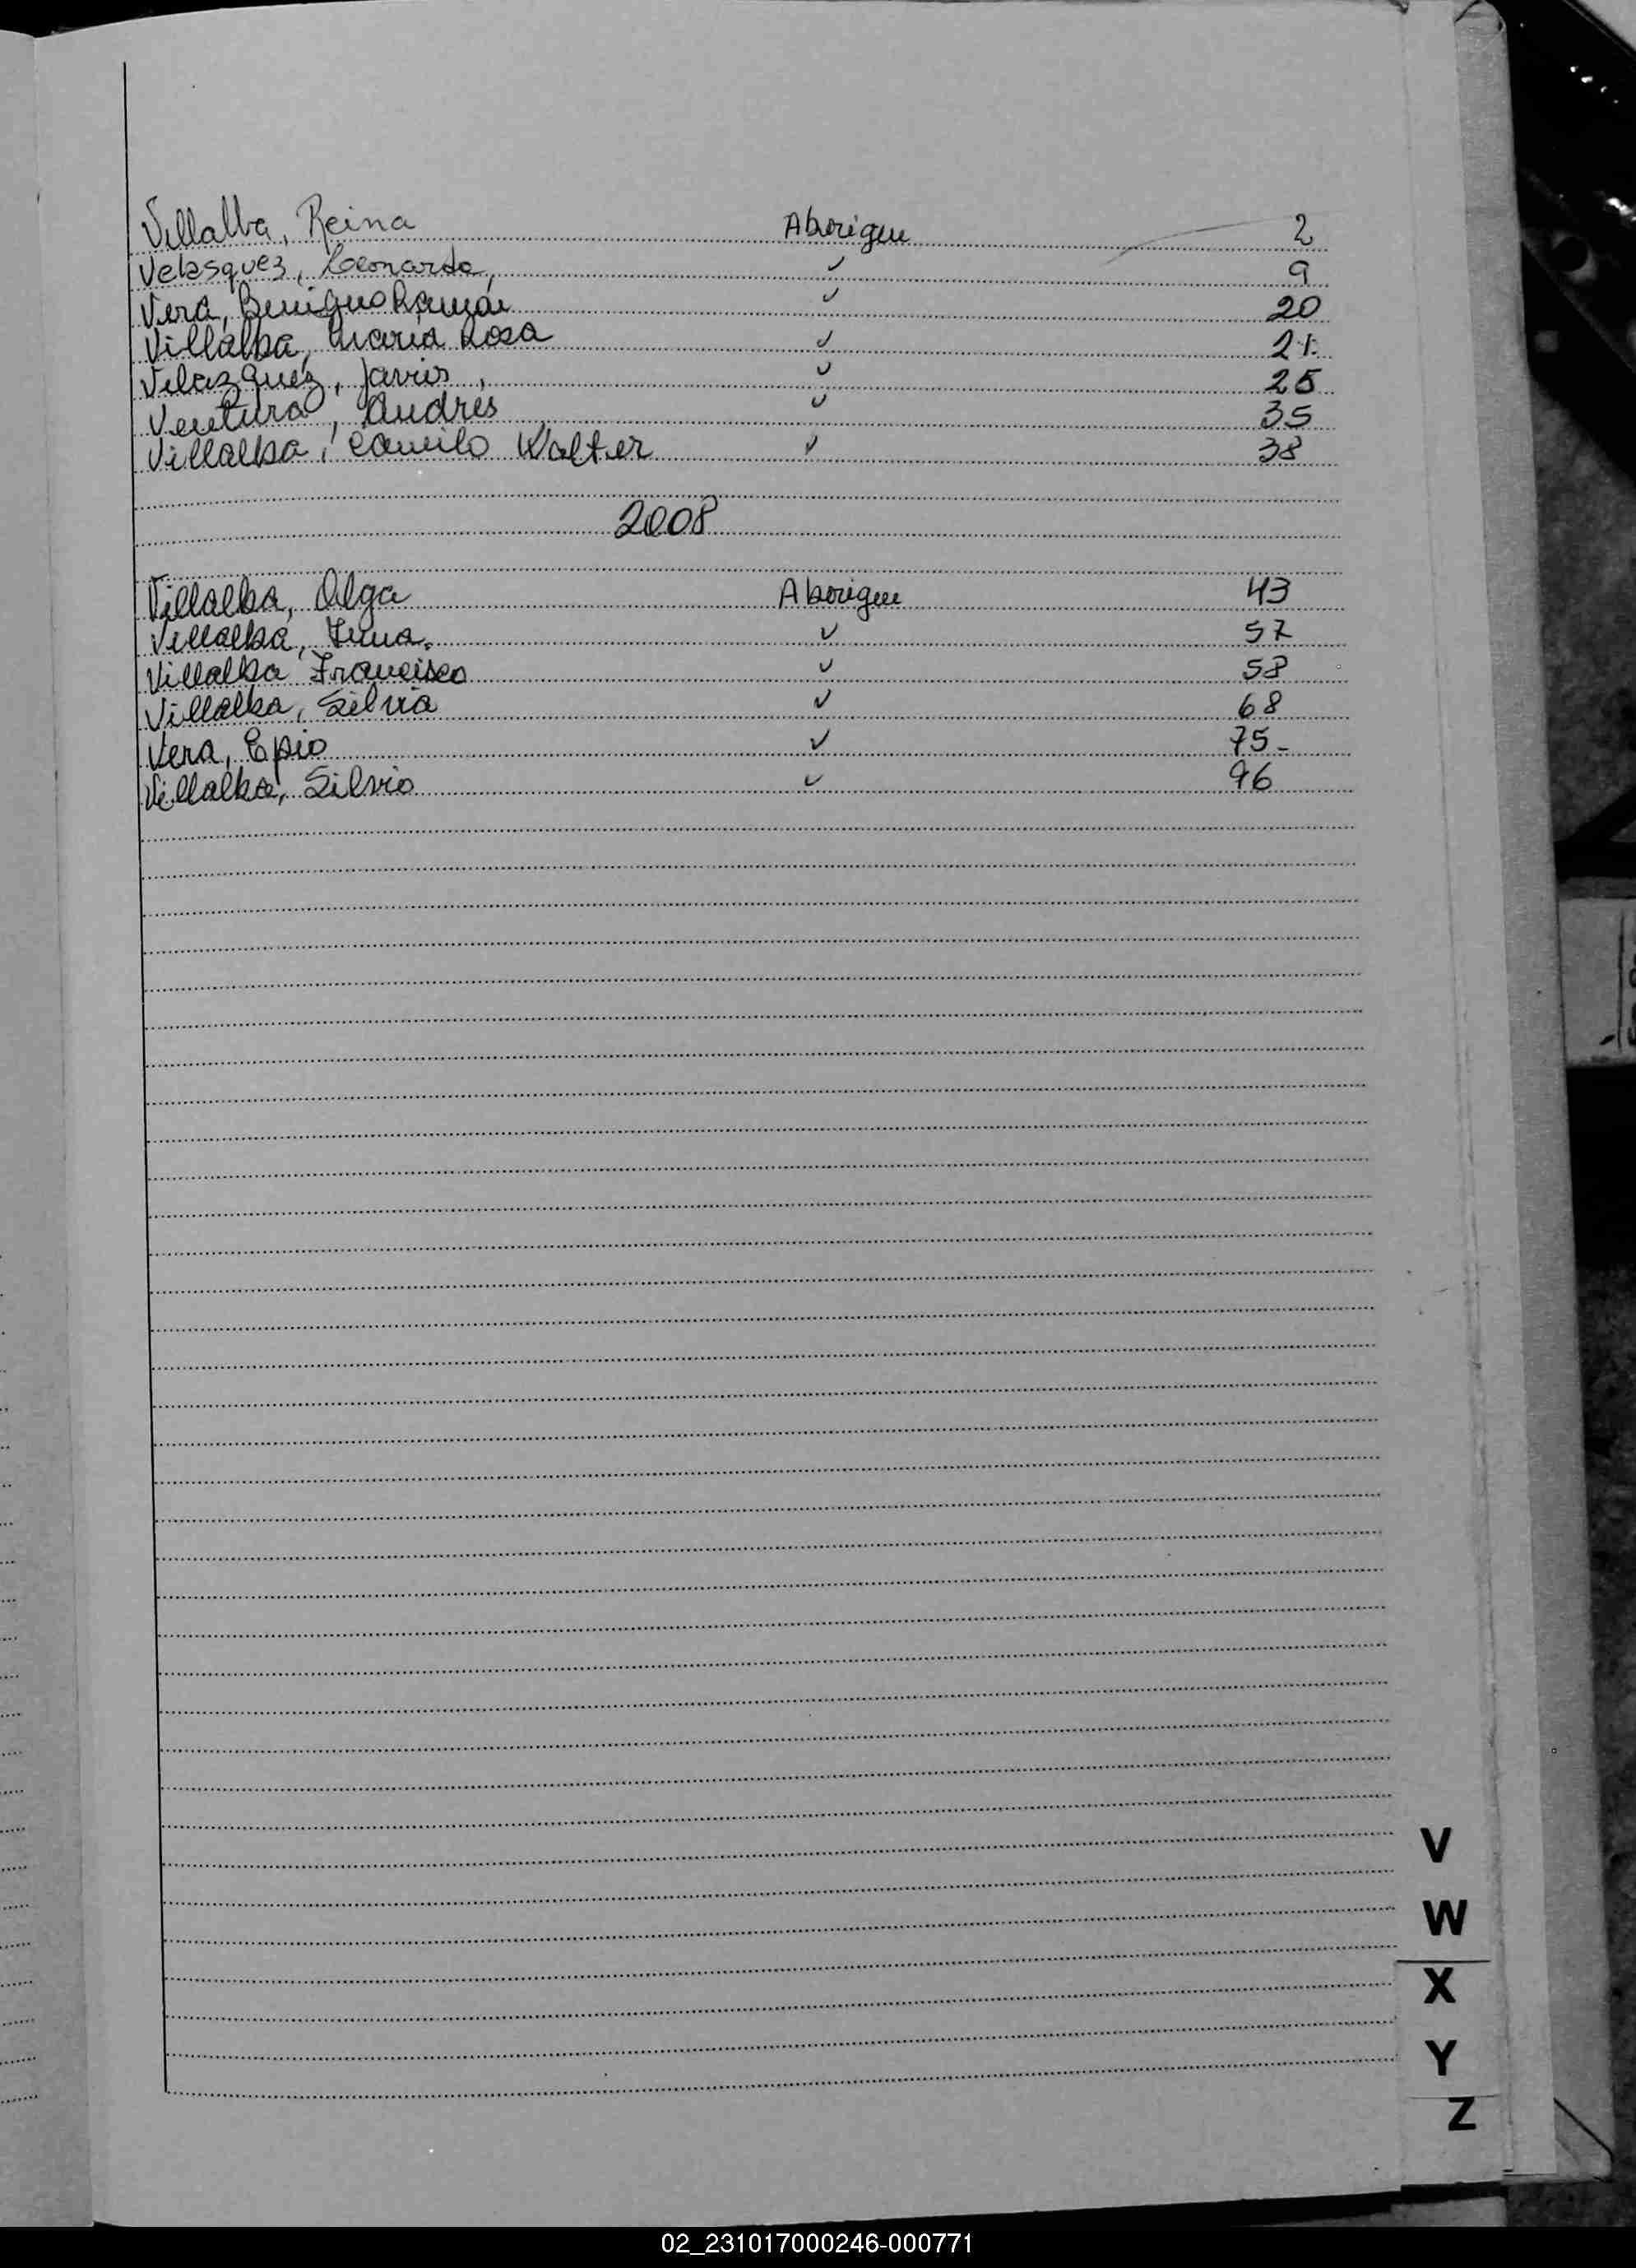 Villalba, Reina Aborigen 2
Velasquez, Leonardo, ✓ 9
Vera, Benigno Ramón ✓ 20
Villalba, Maria Rosa ✓ 21
Velazquez, Javris, ✓ 25
Ventura, Andres ✓ 35
Villalba, Camilo Walter ✓ 38
2008
Villalba, Olga Aborigen 43
Villalba, ✓ 57
Villalba Francisco ✓ 58
Villalba, Silvia ✓ 68
Vera, Epio ✓ 75-
Villalba, Silvio ✓ 96
V
W
X
Y
Z
02_231017000246-000771